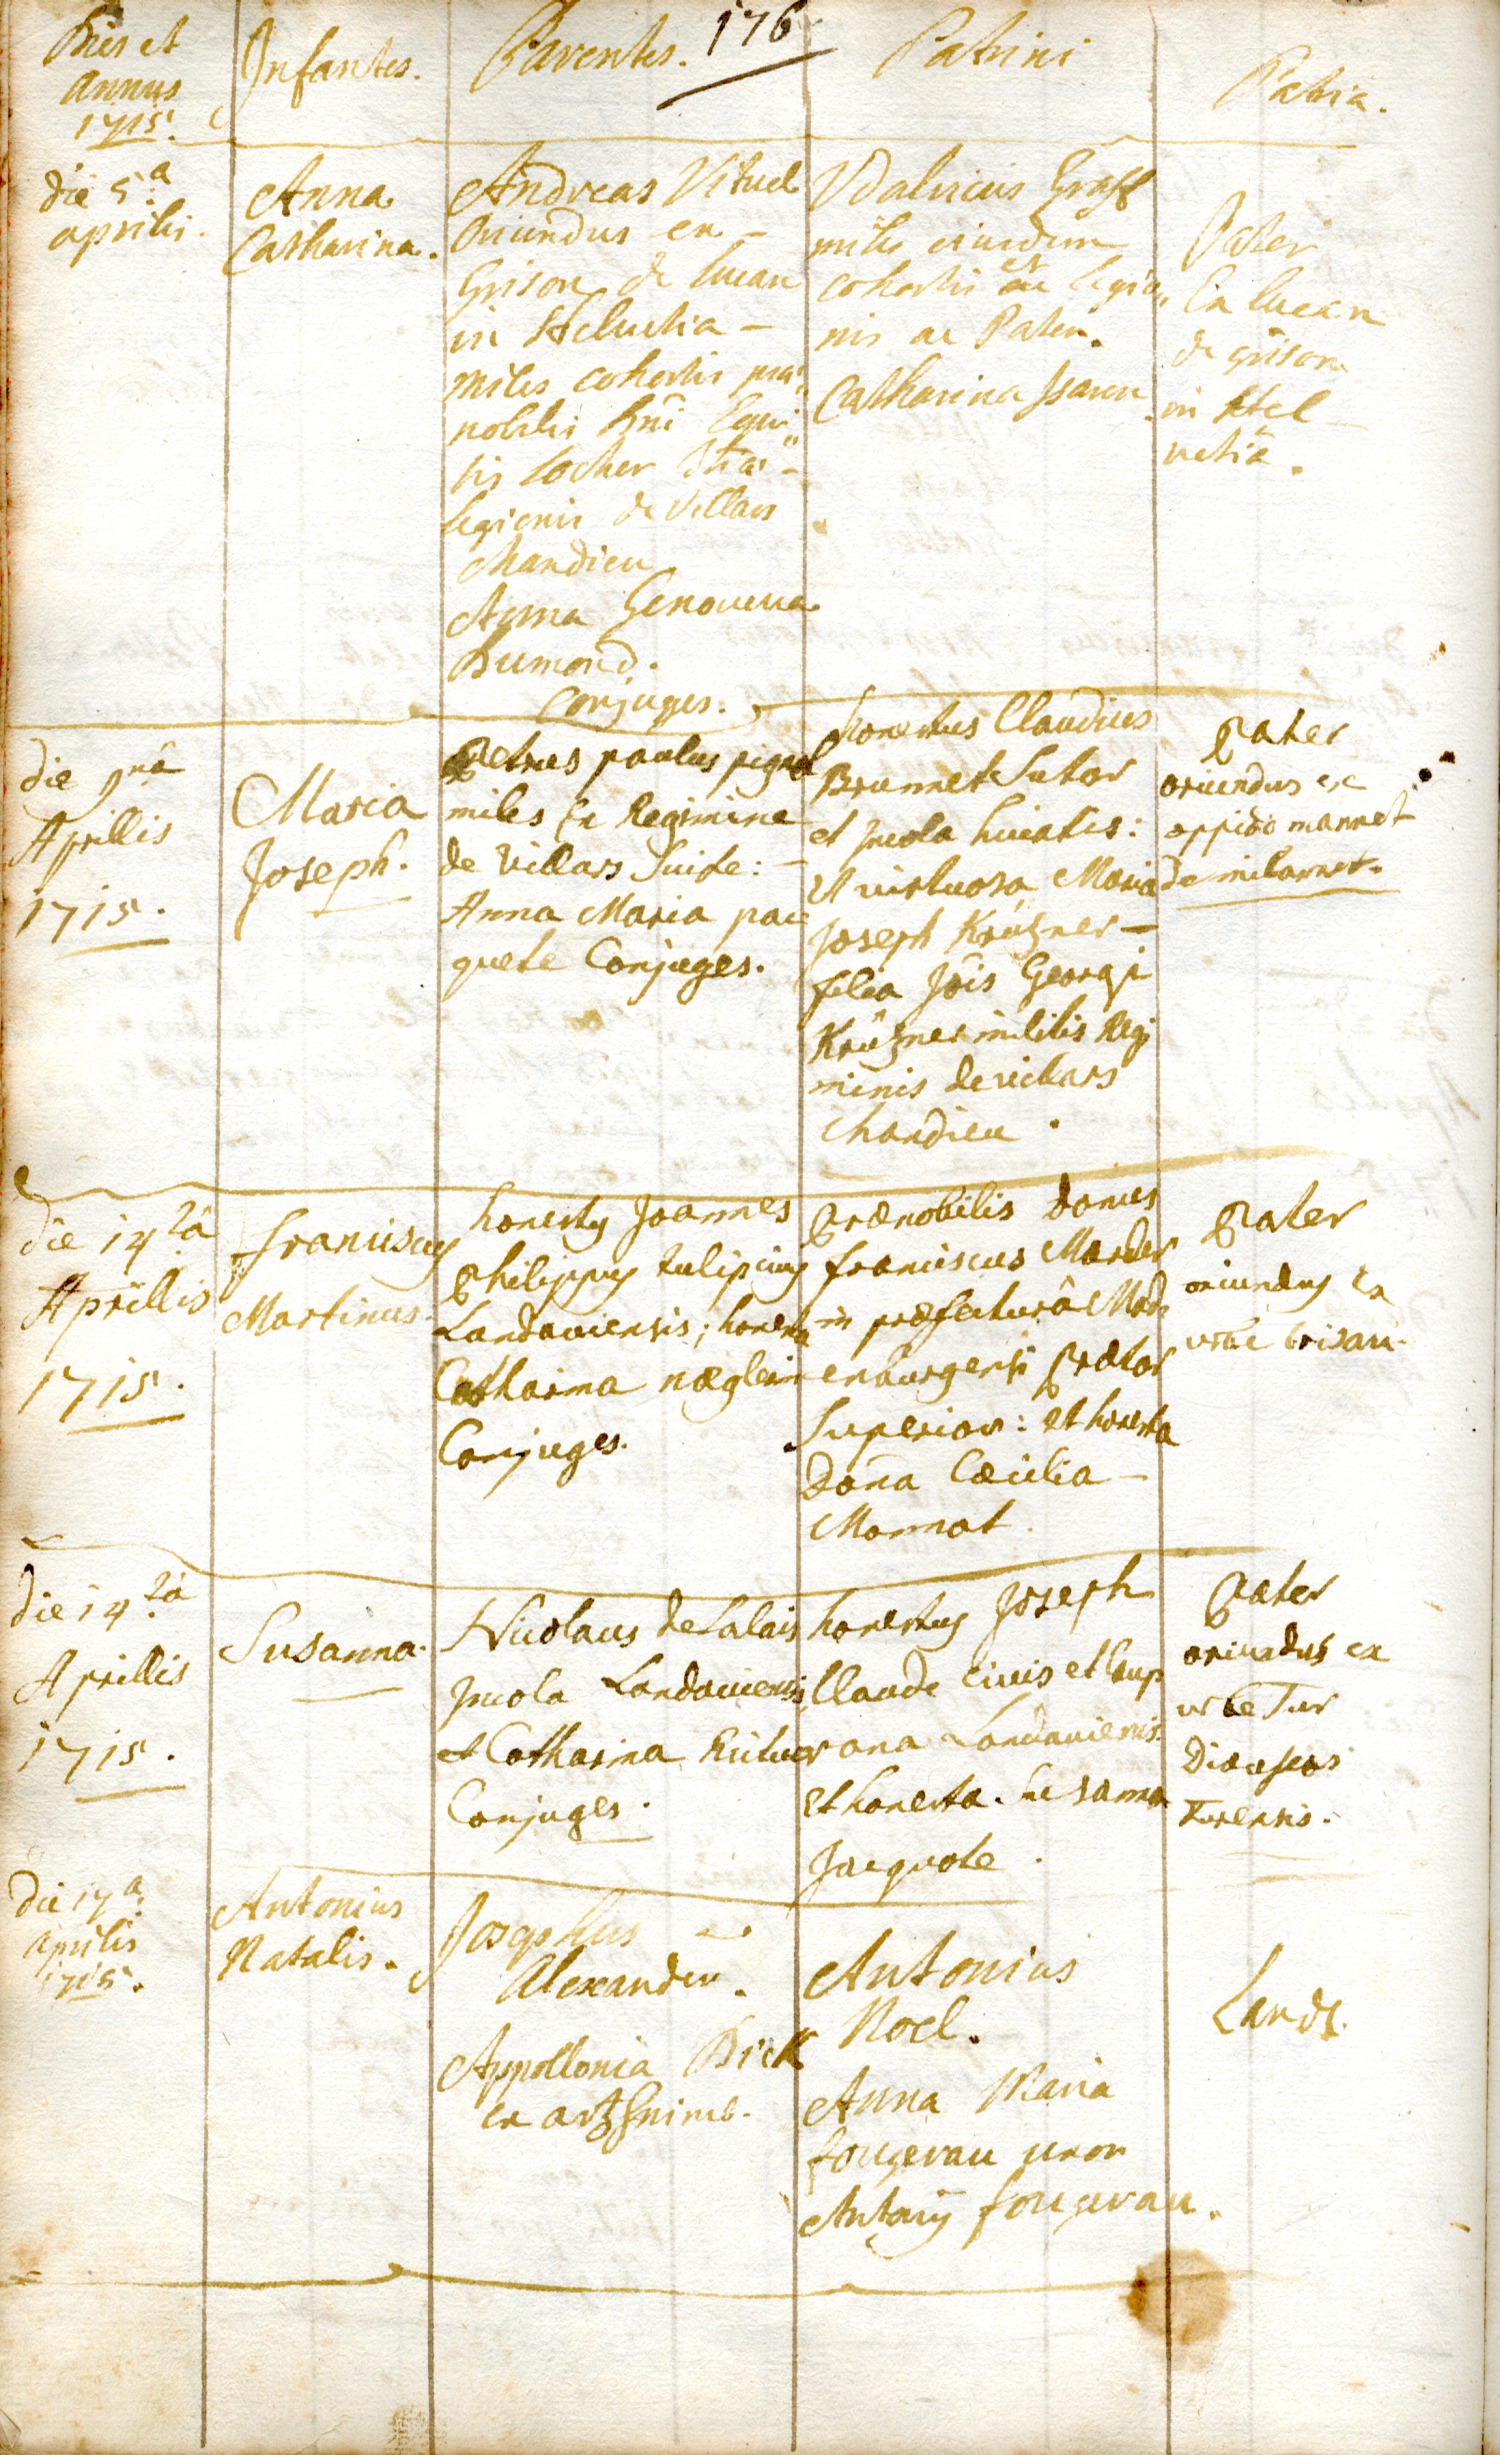 176
Dies et
annus
1715.
Infantes.
Parentes.
Patrini
Patria.
die 5.a
aprilis.
Anna
Catharina.
Andreas Vituel
Oriundus ex
Grison de lucan
in Helvetia
miles cohortis præ
nobilis Dni Equi
tis Locher
legionis de Villars
Chandieu
Anna Genoveva
Dumond.
Conjuges.
Udalricus Graff
miles eiusdem
cohortis et legio
nis ac Pater.
Catharina Isaren
Pater
Ex lucan
de grison
in Hel
vetiâ.
die 9nâ
Aprillis
1715.
Maria
Joseph.
Petrus paulus pignol
miles Ex Regimine
de Villars Suise:
Anna Maria pac
quete Conjuges.
honestus Claudius
Brunnet Sutor
et Incola huiatis:
et virtuosa Maria
Joseph Krützner
filia Jôis Georgi
Krützner militis Regi
minis de villars
Chandieu.
Pater
oriundus ex
oppido mannet
de
die 14ta
Aprillis
1715.
Franciscus
Martinus.
honestus Joannes
Philippus tulipius
Landaviensis; honesta
Catharina næglerin
Conjuges.
Prænobilis Domus
franciscus Marder
in præfecturâ Mad
enburgensi Prætor
Superior: et honesta
Dona Cæcilia
Monnot.
Pater
oriundus Ex
urbe brisan.
die 14ta
Aprillis
1715.
Susanna.
Nicolaus de Lalais
Incola Landaviensis,
et Catharina
Conjuges.
honestus Joseph
Claude Civis et Caup
ona Landaviensis.
et honesta. Susanna
Jacquote.
Pater
oriundus ex
urbe Tur
Diæcesos
turensis.
die 17a.
aprilis
1715.
Antonius
Natalis.
Josephus
Alexander.
Appollonia Dick
ex artzheimb.
Antonius
Noel.
Anna Maria
fougerau uxor
Antonÿ fougerau.
Land.